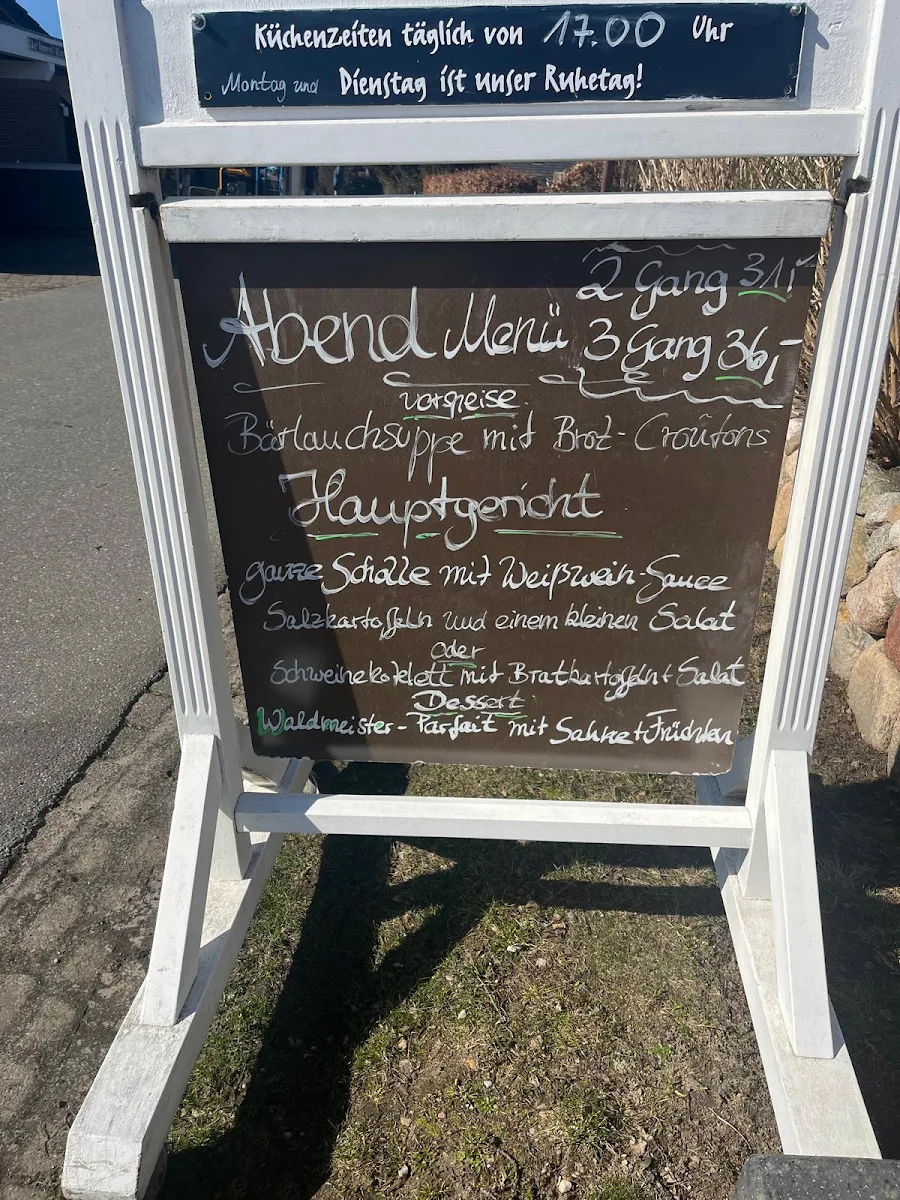 Küchenzeiten täglich von 17.00 Uhr
Montag und Dienstag ist unser Ruhetag!
2 Gang 31,-
Abend Menü 3 Gang 36,-
Vorspeise
Bärlauchsuppe mit Brot-Croûtons
Hauptgericht
ganze Scholle mit Weißwein-Sauce
Salzkartoffeln und einem kleinen Salat
oder
Schweinekotelett mit Bratkartoffeln + Salat
Dessert
Waldmeister-Parfait mit Sahne + Früchten